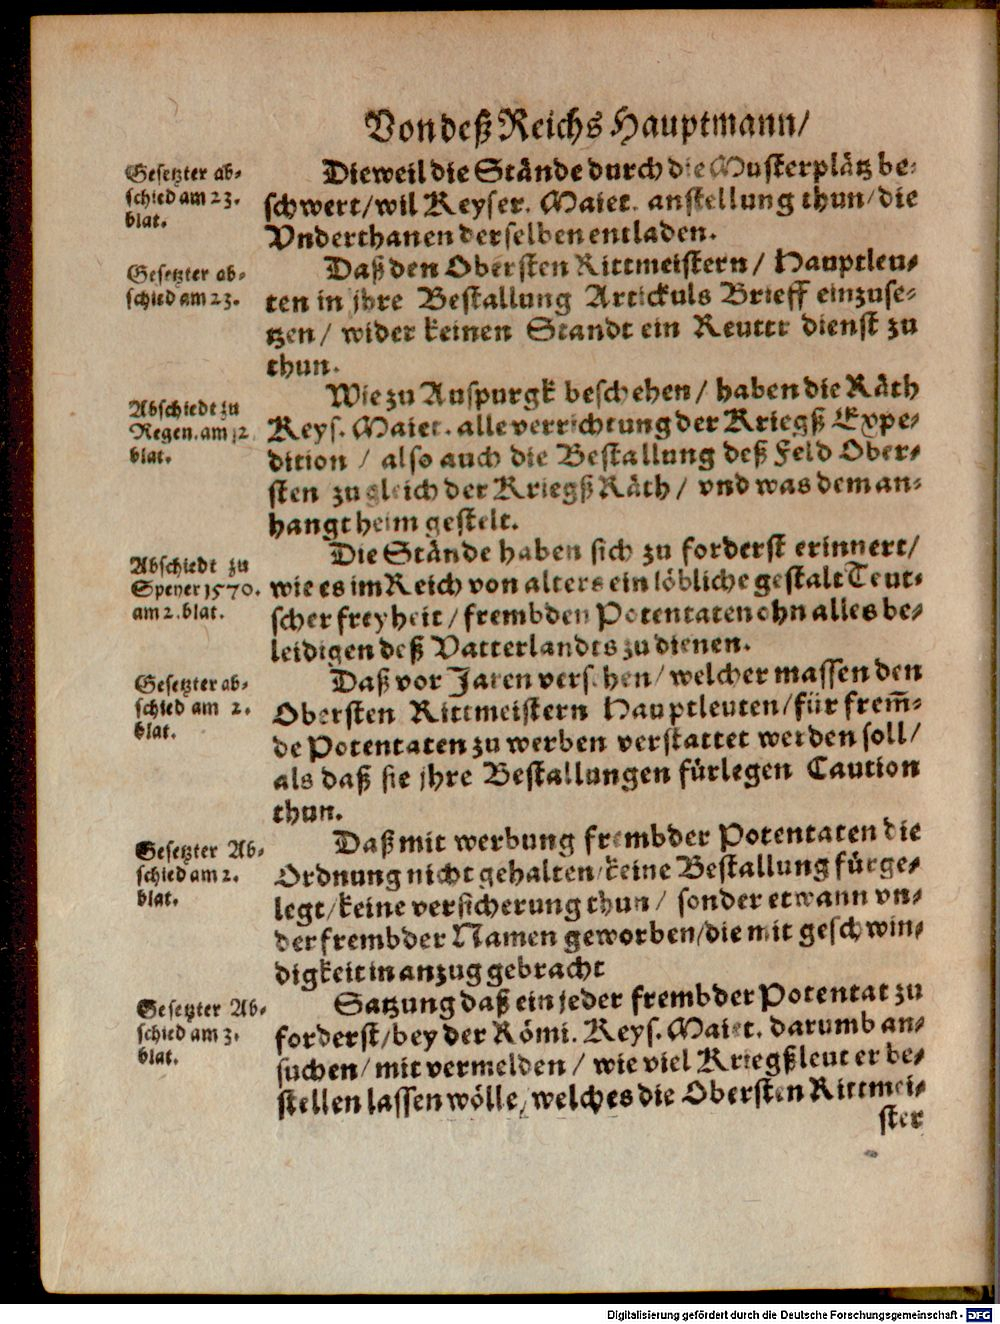 Von deß Reichs Hauptmann/
Gesetzter ab-
schied am 23.
blat.
Dieweil die Stände durch die Musterplätz be-
schwert/wil Keyser. Maiet. anstellung thun/die
Vnderthanen derselben entladen.
Gesetzter ab-
schied am 23.
Daß den Obersten Rittmeistern/ Hauptleu-
ten in jhre Bestallung Artickuls Brieff einzuse-
tzen/ wider keinen Standt ein Reutter dienst zu
thun.
Abschiedt zu
Regen. am 12
blat.
Wie zu Auspurgk beschehen/ haben die Räth
Keys. Maiet. alle verrichtung der Kriegß Expe-
dition / also auch die Bestallung deß Feld Ober-
sten zugleich der Kriegß Räth/ vnd was dem an-
hangt heim gestelt.
Abschiedt zu
Speyer 1570.
am 2. blat.
Die Stände haben sich zu forderst erinnert/
wie es im Reich von alters ein löbliche gestalt Teut-
scher freyheit/ frembden Potentaten ohn alles be-
leidigen deß Vatterlandts zu dienen.
Gesetzter ab-
schied am 2.
blat.
Daß vor Jaren versehen/welcher massen den
Obersten Rittmeistern Hauptleuten/für frem̄-
de Potentaten zu werben verstattet werden soll/
als daß sie jhre Bestallungen fürlegen Caution
thun.
Gesetzter Ab-
schied am 2.
blat.
Daß mit werbung frembder Potentaten die
Ordnung nicht gehalten/keine Bestallung fürge-
legt/keine versicherung thun/ sonder etwann vn-
der frembder Namen geworben/die mit geschwin-
digkeit in anzug gebracht
Gesetzter Ab-
schied am 3.
blat.
Satzung daß ein jeder frembder Potentat zu
forderst/bey der Römi. Keys. Maiet. darumb an-
suchen/mit vermelden/ wie viel Kriegßleut er be-
stellen lassen wölle/welches die Obersten Rittmei-
ster
Digitalisierung gefördert durch die Deutsche Forschungsgemeinschaft - DFG